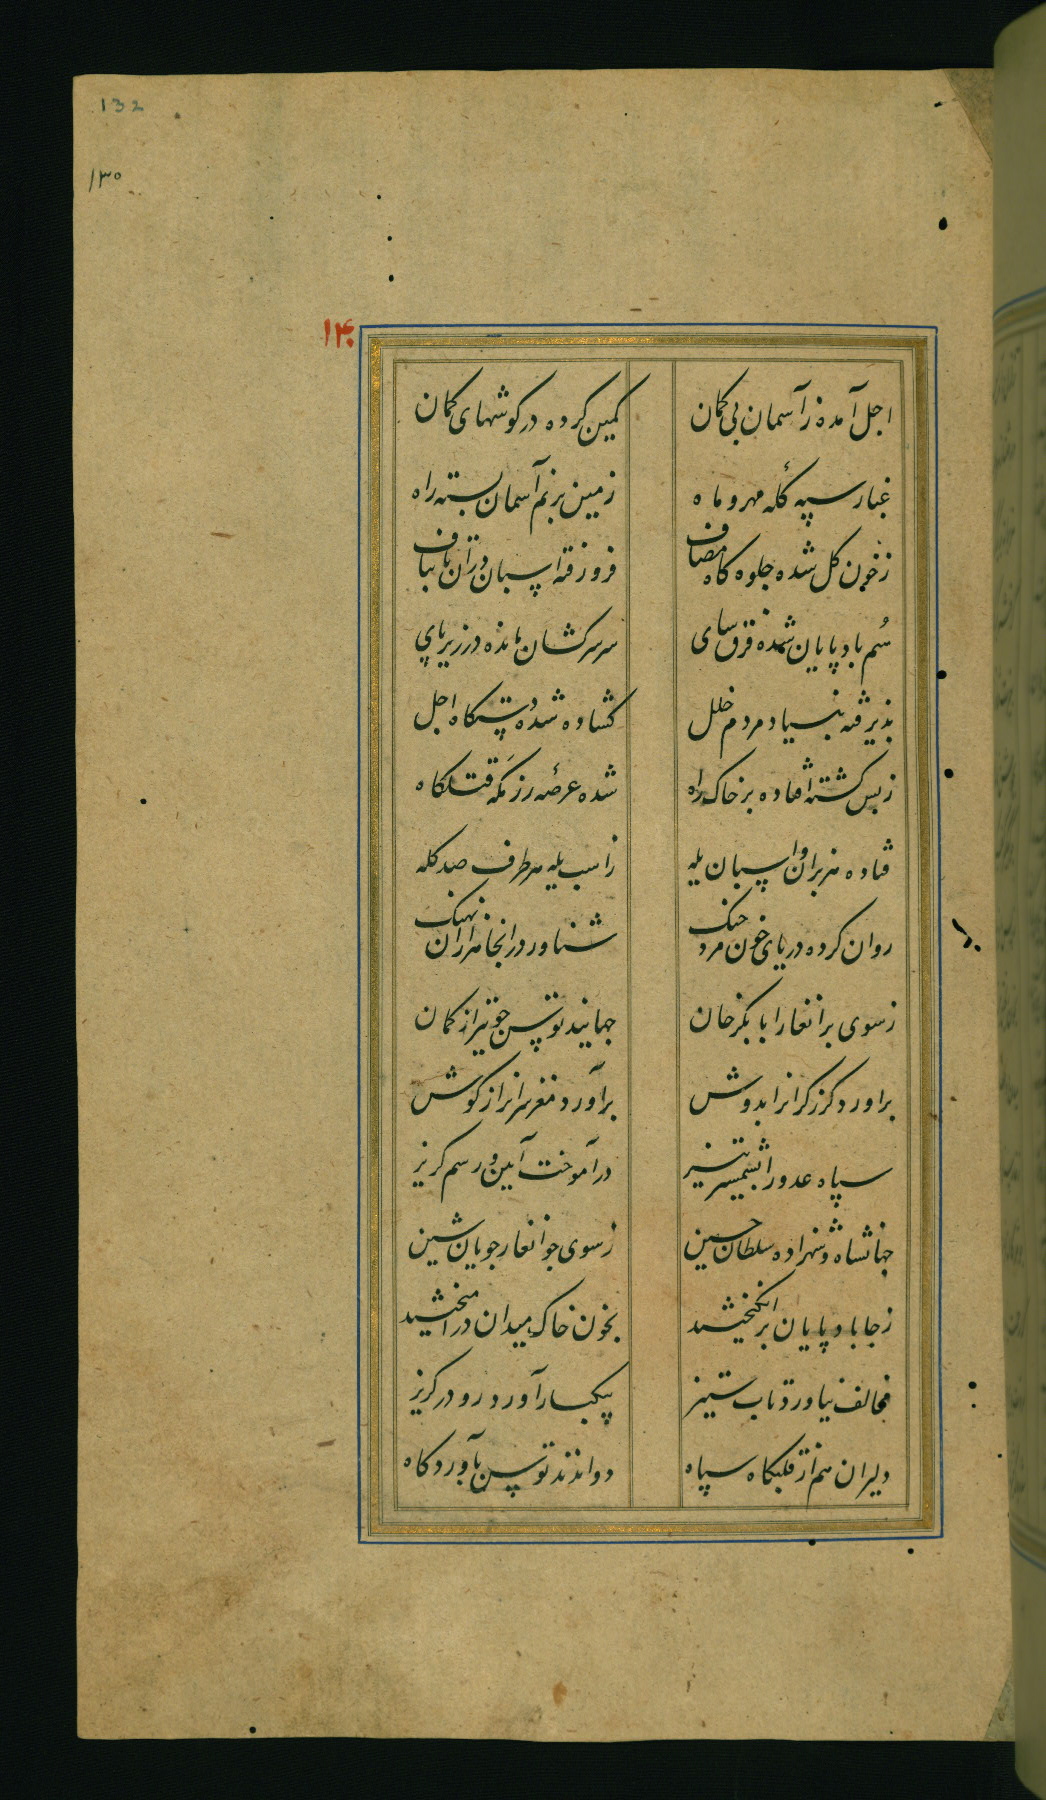 132
۱۳۰
۱۴۰
اجل آمده ز آسمان بی کمان کمین کرده در کوشهای کمان
غبار سپه کله مهر و ماه زمین بزم آسمان بسته راه
ز خون کل شده جلوه کاه مصاف فرو رفته اسپان در آن تا بناف
سُم باد پایان شده فرق سای سر سرکشان مانده در زیر پای
پذیرفته بنیاد مردم خلل کشاده شده دستکاه اجل
ز بس کشته افتاده بر خاک راه شده عرصهٔ رزمکه قتلکاه
فتاده هزبران و اسپان یله ز اسب یله هر طرف صد کله
روان کرده دریای خون مرد جنک شناور در انجا هزاران نهنک
ز سوی برانغار ابا بکر خان جهانید توسن چو تیر از کمان
بر اورد کرز کرانرا بدوش بر آورد مغز سرانرا ز کوش
سپاه عدو را بشمشیر تیز در آموخت آیین و رسم کریز
جهانشاه و شهزاده سلطان حسین ز سوی جوانغار جویان شین
ز جا باد پایان برانکیختند بخون خاک میدان در امیختند
مخالف نیاورد تاب ستیز بیکبار آورد رو در کریز
دلیران هم از قلبکاه سپاه دواندند توسن باوردکاه